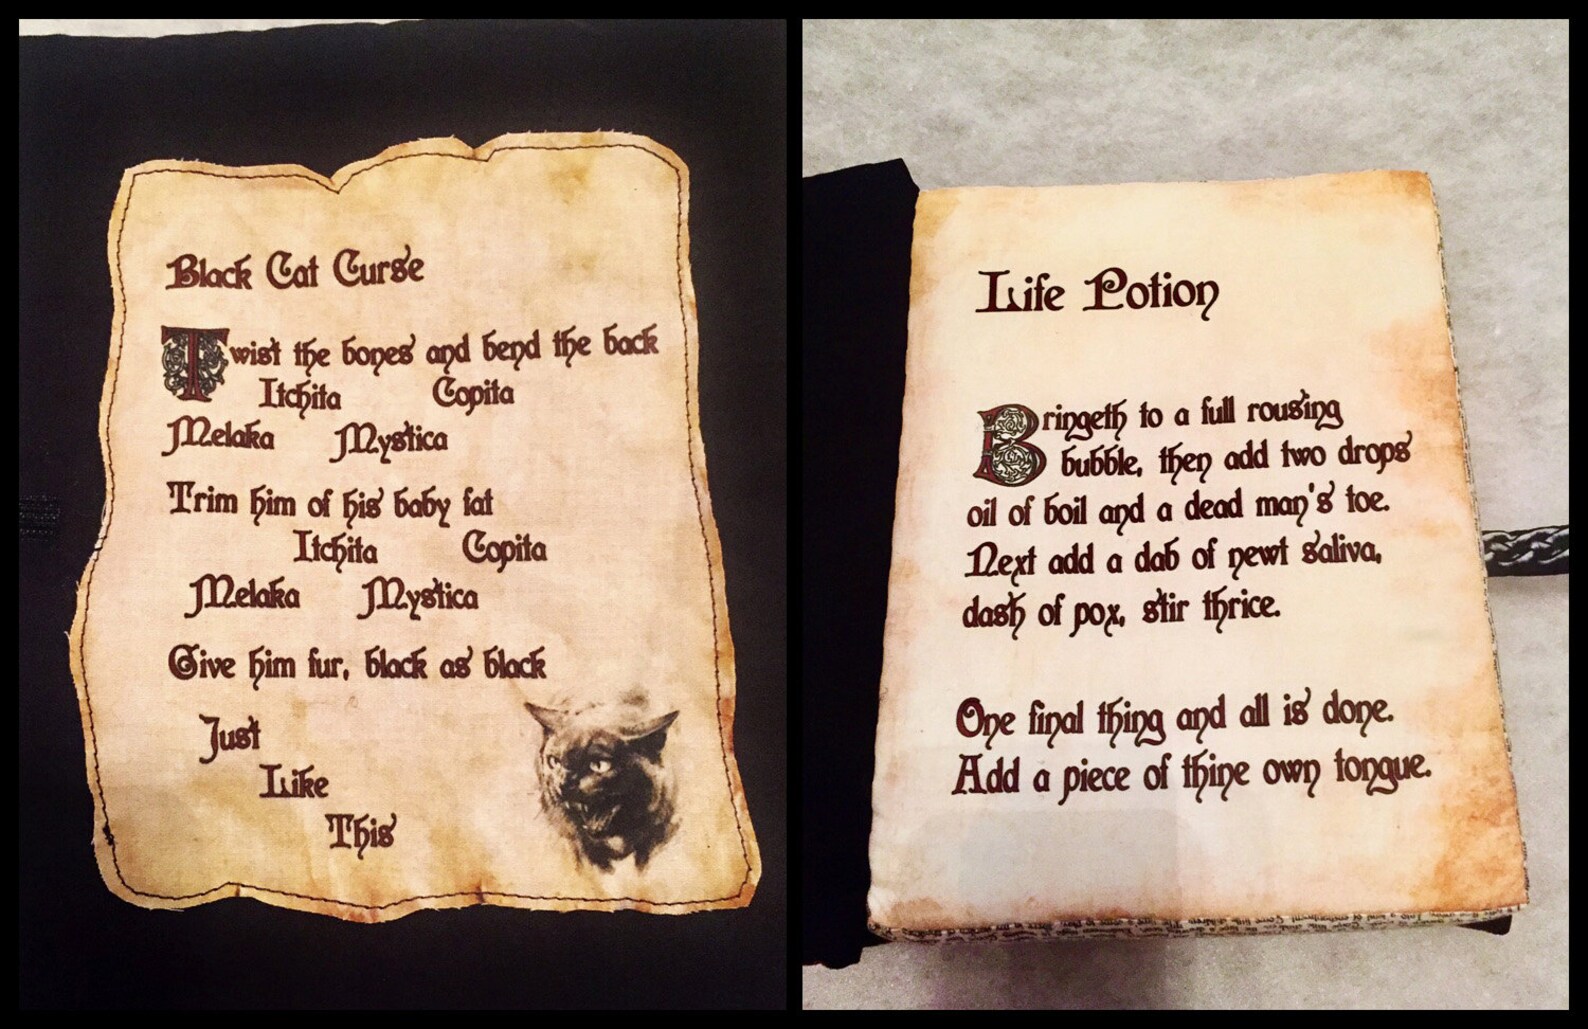 Black Cat Curse
Twist the bones and bend the back
Itchita Copita
Melaka Mystica
Trim him of his baby fat
Itchita Copita
Melaka Mystica
Give him fur, black as black
Just
Like
This
Life Potion
Bringeth to a full rousing
bubble, then add two drops
oil of boil and a dead man's toe.
Next add a dab of newt saliva,
dash of pox, stir thrice.
One final thing and all is done.
Add a piece of thine own tongue.